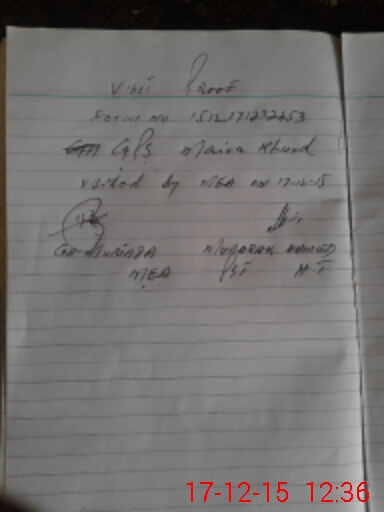 Visit Proof
Form No. 1512171232653
GPS Maira Khurd
visited by MEA on 17-12-15
GH-Murtaza Mubarak Ahmed
MEA PST H-T
17-12-15 12:36